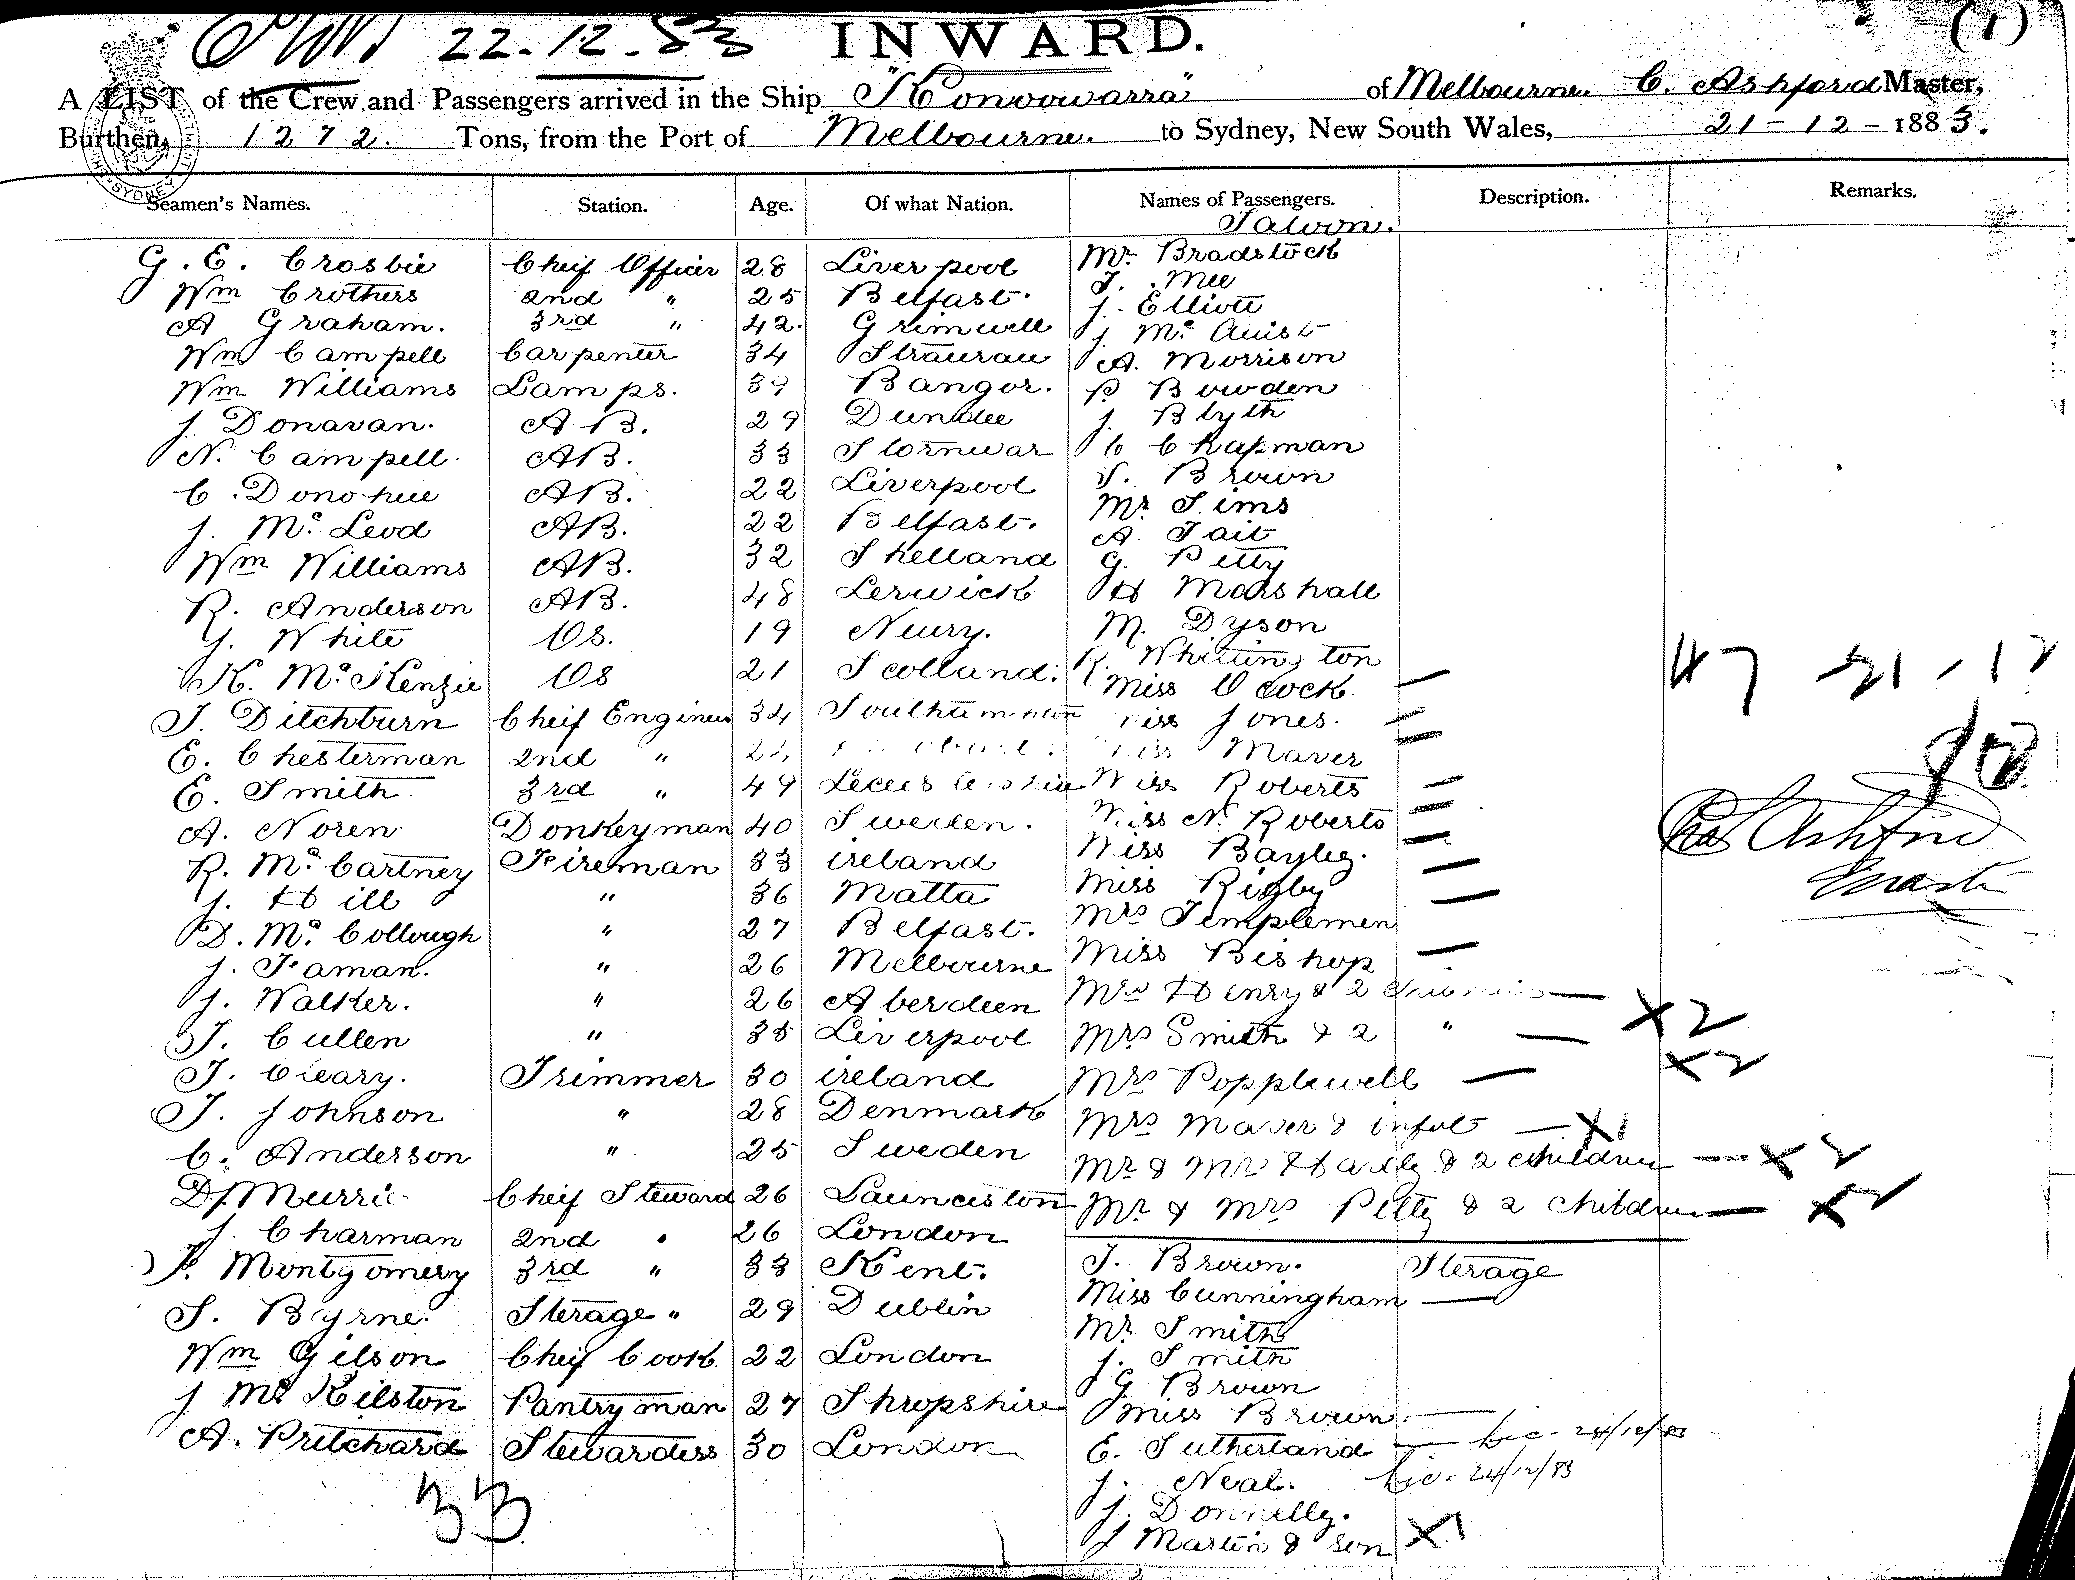 22.12.83 INWARD. (1)
A LIST of the Crew and Passengers arrived in the Ship "Konoowarra" of Melbourne. C. Ashford Master,
Burthen, 1272. Tons, from the Port of Melbourne. to Sydney, New South Wales, 21-12-1883.
Seamen's Names. Station. Age. Of what Nation. Names of Passengers. Description. Remarks.
Saloon.
G. E. Crosbie Cheif Officer 28 Liverpool Mr. Bradstock
Wm Crothers 2nd " 25 Belfast. J. Mee
A Graham. 3rd " 42. Grimwell J. Elliott
Wm Campell Carpenter 34 J. Mc. Quist
Wm Williams Lamps. 39 Bangor. A. Morrison
J. Donavan. A B. 29 Dundee P. Bowden
N. Campell. AB. 33 Stornwar J. Blyth
C. Donohue AB. 22 Liverpool C Chapman
J. Mc. Leod AB. 22 Belfast. S. Brown
Wm Williams AB. 32 Shetland Mr Sims
R. Anderson AB. 48 Lerwick A. Tait
G. White OS. 19 Neury. G. Petty
K. Mc. Kenzie OS 21 Scotland. H Marshall
M. Dyson
R. Whittington
Miss Ocock.
T. Ditchburn Cheif Engineer 34 Southampton Miss Jones.
E. Chesterman 2nd " Miss Maver
E. Smith 3rd " 49 Miss Roberts
A. Noren Donkeyman 40 Sweden. Miss N. Roberts
R. Mc. Cartney Fireman 33 ireland Miss Bayley.
J. Hill " 36 Matta Miss Rigby
D. Mc. Collough " 27 Belfast. Mrs Templemen
J. Faman. " 26 Melbourne Miss Bishop
J. Walker. " 26 Aberdeen Mrs Henry & 2 Children X2
T. Cullen " 35 Liverpool Mrs Smith & 2 " X2
T. Cleary. Trimmer 30 ireland Mrs Popplewell
T. Johnson " 28 Denmark Mrs Maver & infat X1
C. Anderson " 25 Sweden Mr & Mrs Hartly & 2 children X2
D. Murrie Cheif Steward 26 Launceston Mr & Mrs Petty & 2 children X2
J. Charman 2nd " 26 London
F. Montgomery 3rd " 33 Kent. T. Brown. Sterage
S. Byrne. Sterage " 29 Dublin Miss Cunningham
Wm Gilson Cheif Cook 22 London Mr. Smith
J Mc Kilston Pantryman 27 Shropshire J. Smith
A. Pritchard Stewardess 30 London G Brown
Miss Brown.
E. Sutherland 24/12/83
J. Neal. 24/12/83
J. Donnelly.
J Martin & son X1
33
47 21.12
Chas Ashford
Master